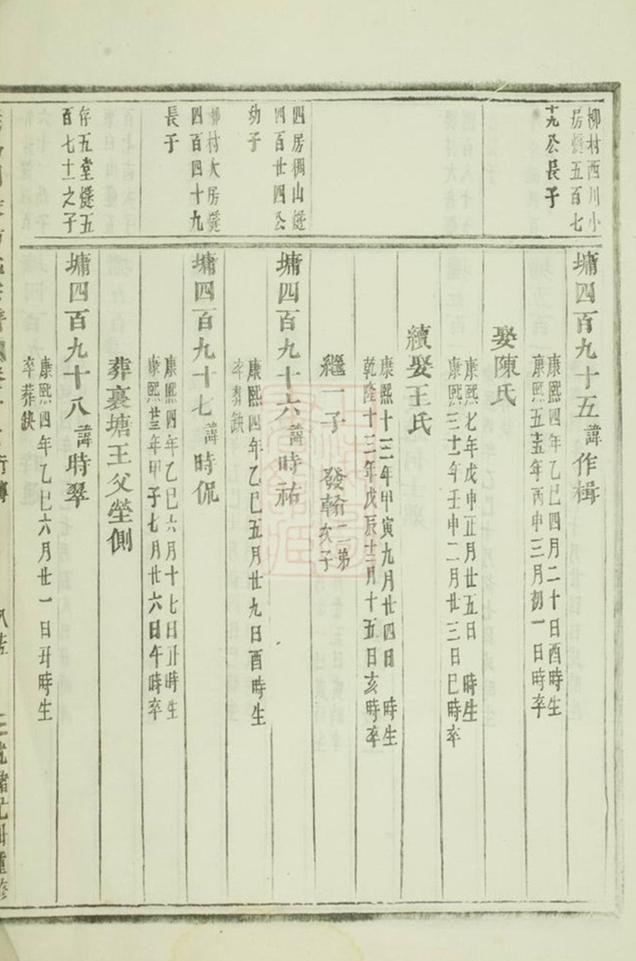 柳村西川小
房蹤五百七
十九公長子
墉四百九十五諱作楫
康熙四年乙巳四月二十日酉時生
康熙五五年丙申三月初一日時卒
娶陳氏
康熙七年戊申正月廿五日 時生
康熙三十一年壬申二月廿三日巳時卒
續娶王氏
康熙十三年甲寅九月廿四日 時生
乾隆十三年戊辰十二月十五日亥時卒
繼一子 發翰二弟次子
四房桐山蹤
四百廿四公
幼子
墉四百九十六諱時祐
康熙四年乙巳五月廿九日酉時生
卒葬缺
柳村大房蹤
四百四十九
長子
墉四百九十七諱時侃
康熙四年乙巳六月十七日丑時生
康熙廿三年甲子七月廿六日午時卒
葬裏塘王父塋側
存五堂蹤五
百七十一之子
墉四百九十八諱時翠
康熙四年乙巳六月廿一日丑時生
卒葬缺
行傳
光緒九
重修